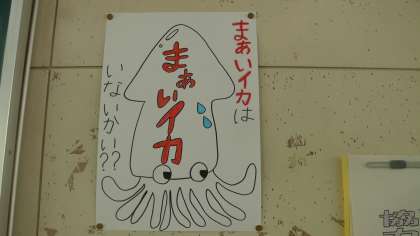 まぁいイカは
まぁいイカ
いないかい??